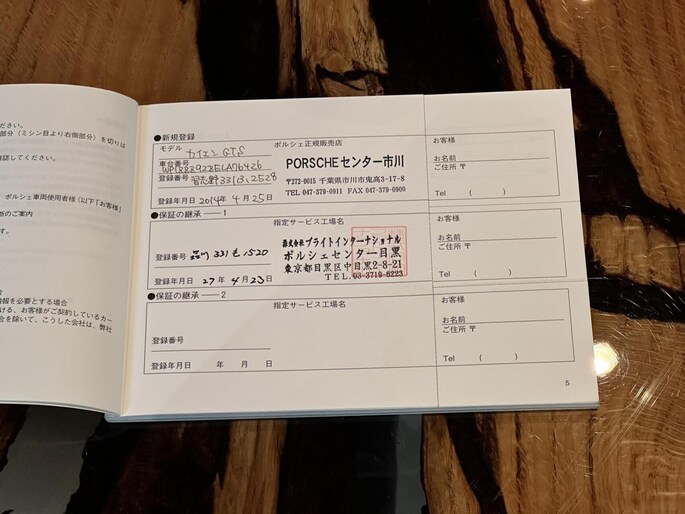 ださい。
部分(ミシン目より右側部分)を切りは
確認してください。
ポルシェ車両使用者様(以下「お客様」
断のご案内
す。
合
情報を必要とする場合
ける、お客様がご契約しているカー
合を除いて、こうした会社は、弊社
●新規登録
モデル カイエン GTS
ポルシェ正規販売店
お客様
車台番号
PORSCHEセンター市川
お名前
ご住所 〒
登録番号 習志野 331ひ2528
〒272-0015 千葉県市川市鬼高3-17-8
TEL 047-379-0911 FAX 047-379-0900
登録年月日 2014年 4月 25日
Tel ( )
●保証の継承――1
指定サービス工場名
お客様
株式会社ブライトインターナショナル
お名前
登録番号 品川 331も1520
ポルシェセンター目黒
ご住所 〒
東京都目黒区中目黒2-8-21
登録年月日 27年 4月 23日
TEL.03-3719-6223
Tel ( )
●保証の継承――2
指定サービス工場名
お客様
お名前
ご住所 〒
登録番号
登録年月日 年 月 日
Tel ( )
5